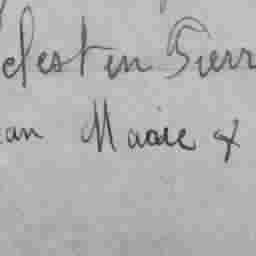 elestin Pierr
ean Marie &